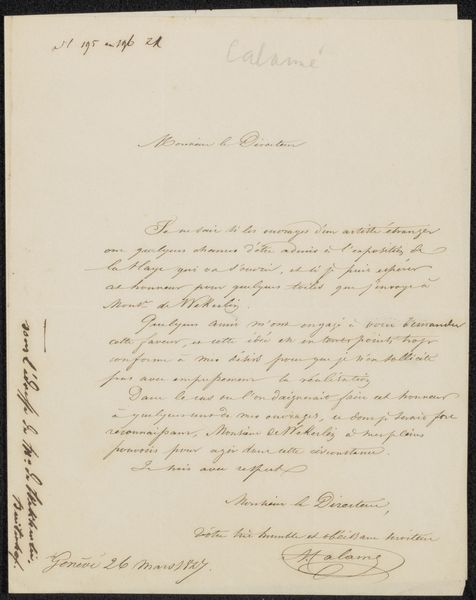 195 en 196
Calamé
Monsieur le Directeur
Je ne sais si les ouvrages d'un artiste étranger
ont quelques chances d'être admis à l'exposition de
la Haye qui va s'ouvrir, et si je puis espérer
cet honneur pour quelques toiles que j'envoye à
Monsr. de Wekerlin.
Quelques amis m'ont engagé à vous demander
cette faveur, et cette idée est en tout points trop
conforme à mes désirs pour que je n'en sollicite
pas avec empressement la réalisation
Dans le cas ou l'on daignerait faire cet honneur
à quelques uns de mes ouvrages, ce dont je serais fort
reconnaissant, Monsieur de Wekerlin à mes pleins
pouvoirs pour agir dans cette circonstance.
Je suis avec respect
Monsieur le Directeur,
Vôtre très humble et obéissant serviteur
ACalame
Genève 26 Mars 1847.
sous l'adresse de Mr. de